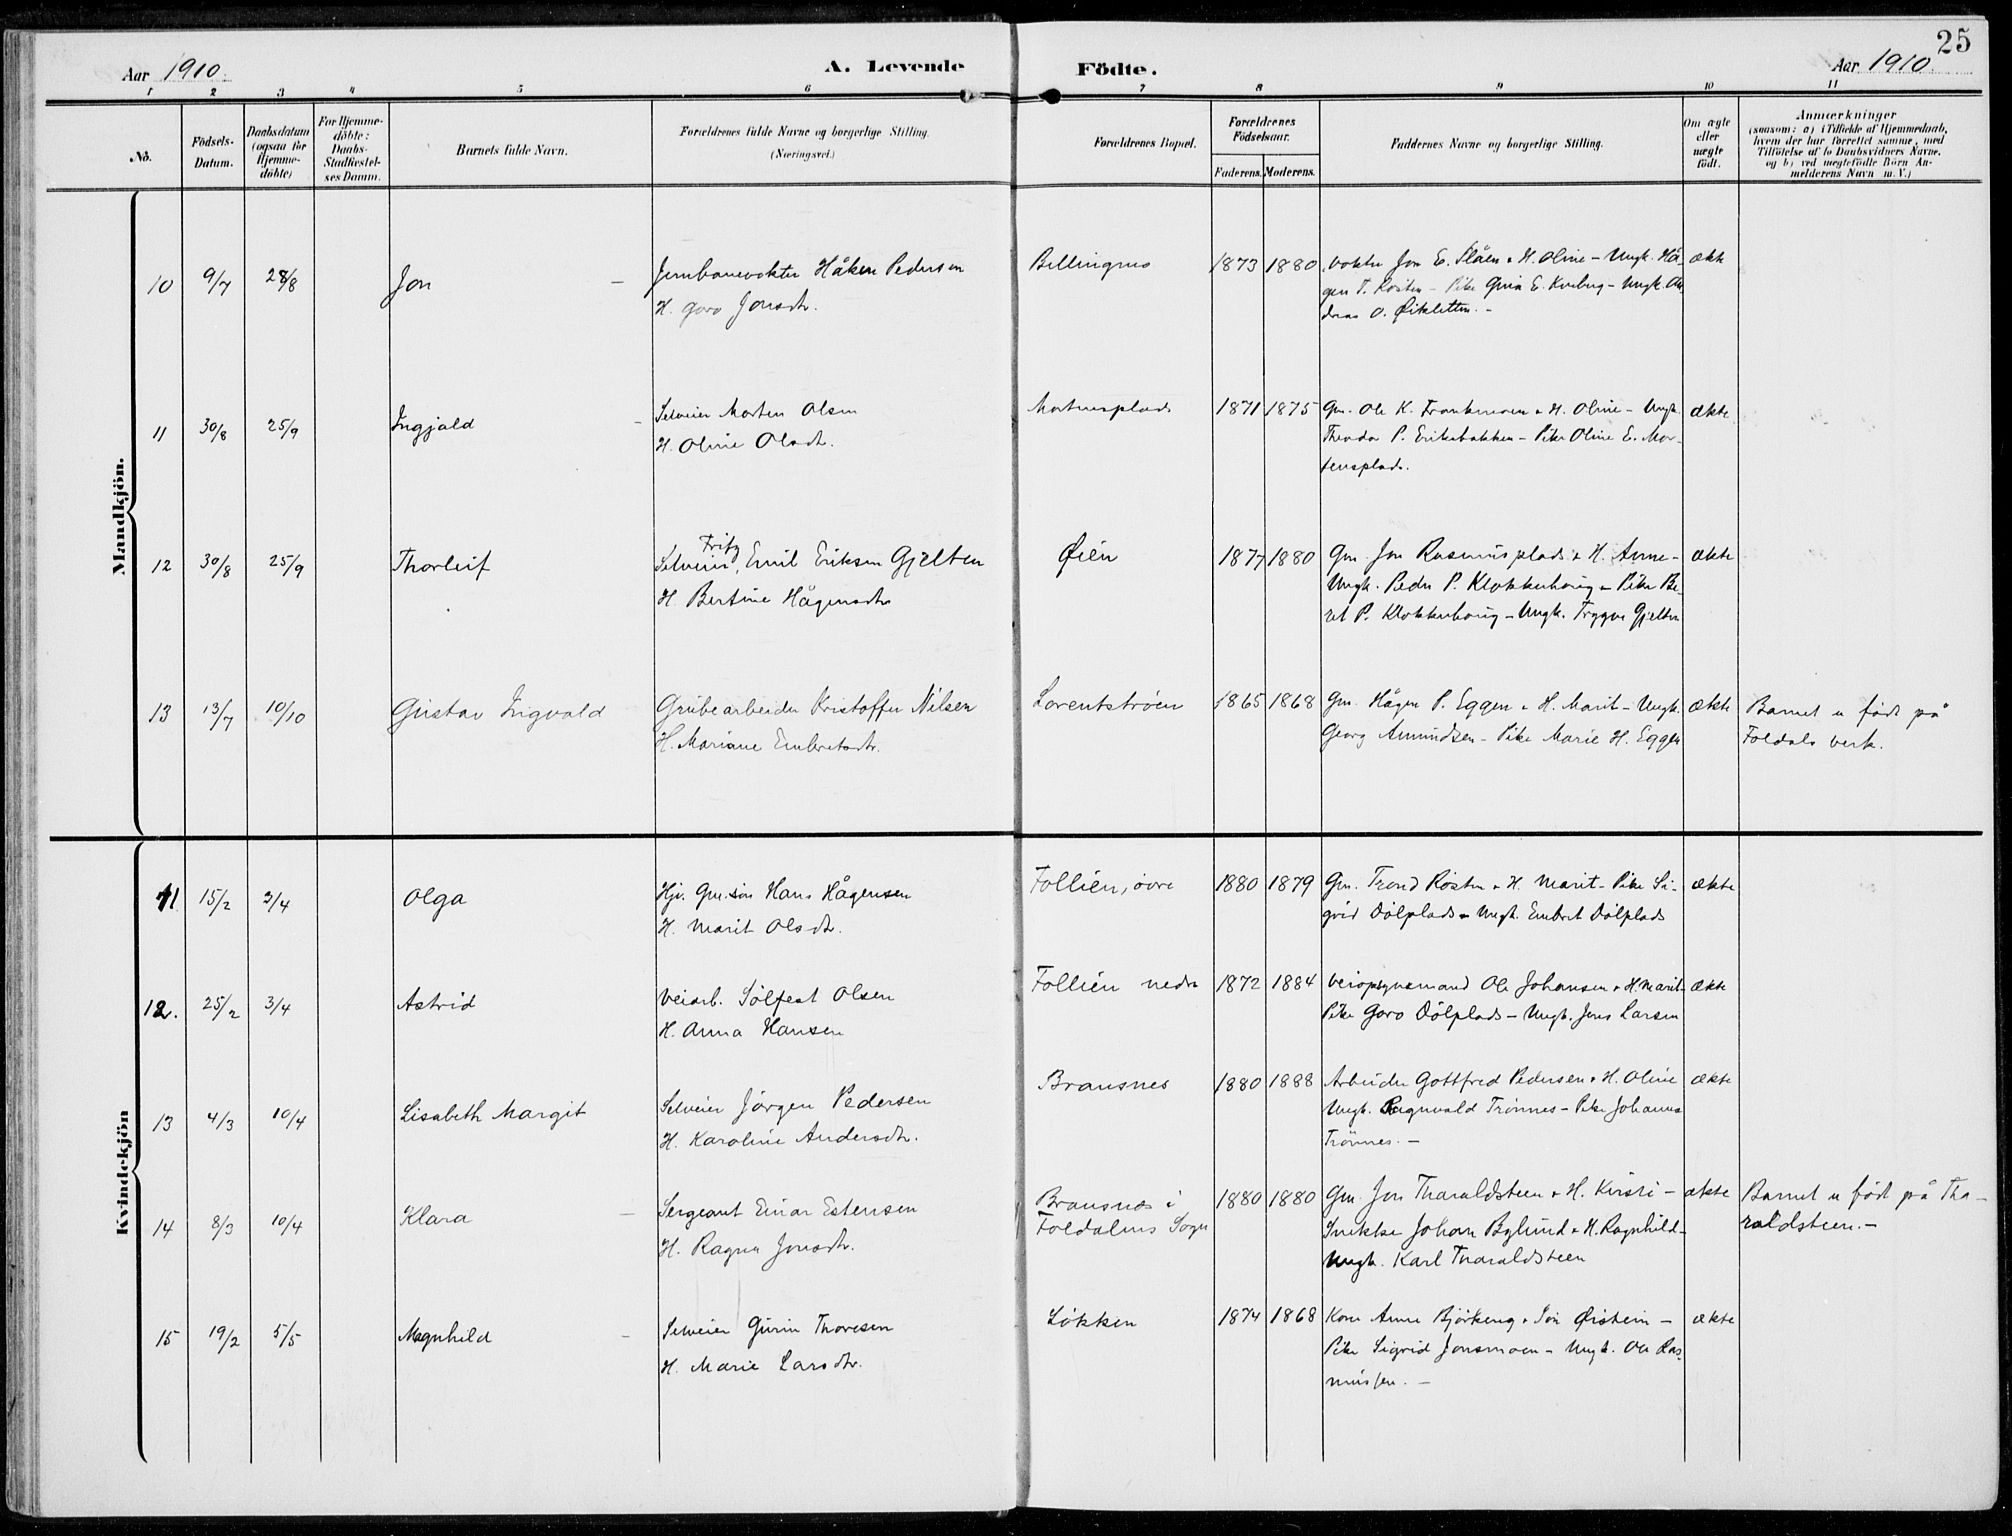 25
Aar 1910.
A. Levende
Födte.
Aar 1910.
1 2 3 4 5 6 7 8 9 10 11
No.
Födsels-
Datum.
Daabsdatum
(ogsaa for
Hjemme-
döbte)
For Hjemme-
döbte:
Daabs-
Stadfæstel-
ses Datum.
Barnets fulde Navn.
Forældrenes fulde Navne og borgerlige Stilling.
(Næringsvei.)
Forældrenes Bopæl.
Forældrenes
Födselsaar.
Faderens. Moderens.
Faddernes Navne og borgerlige Stilling.
Om ægte
eller
uægte
födt.
Anmærkninger
(saasom: a) i Tilfælde af Hjemmedaab,
hvem der har forrettet samme, med
Tilföielse af to Daabsvidners Navne,
og b) ved uægtefödte Börn An-
melderens Navn m. V.)
Mandkjön.
10 9/7 28/8 Jon –
Jernbanevokter Håken Pedersen
H. Goro Jonsdtr.
Bellingmo
1873 1880
Vokter Jon E. Slåen & H. Oline – Ungk. Hå-
gen T. Rosten – Pike Guria E. Kveberg – Ungk. An
dreas O. Øiesletten. –
ækte
11 30/8 25/9 Ingjald –
Selveier Morten Olsen
H. Oline Olsdtr.
Mortensplads
1871 1875
Gm. Ole K. Frankmoen & H. Oline – Ungk.
Theodor P. Eriksbakken – Pike Oline E. Mor-
tensplads.
ækte
12 30/8 25/9 Thorleif
Fritz
Selveier, Emil Eriksen Gjelten
H. Bertine Hågensdtr
Øien
1877 1880
Gm. Jon Rasmusplads & H. Anne –
Ungk. Peder P. Klokkerhaug – Pike Be-
ret P. Klokkerhaug – Ungk. Trygve Gjelten
ækte
13 13/7 10/10 Gustav Ingvald
Grubearbeider Kristoffer Nilsen
H. Mariane Embretsdtr.
Lorentstrøen
1865 1868
Gm. Hågen P. Eggen & H. Marit – Ungk.
Georg Amundsen – Pike Marie H. Eggen
ækte
Barnet er født på
Foldals verk.
Kvindekjön
11 15/2 3/4 Olga
Hjv. Gm.søn Hans Hågensen
H. Marit Olsdtr.
Follien, øvre
1880 1879
Gm. Trond Rosten & H. Marit – Pike Si-
grid Dölplads – Ungk. Embret Dölplads
ækte
12. 25/2 3/4 Astrid
Veiarb. Sölfest Olsen
H. Anna Hansen
Follien nedre
1872 1884
Veiopsynsmand Ole Johansen & H. Marit –
Pike Goro Dölplads – Ungk. Jens Larsen
ækte
13 4/3 10/4 Lisabeth Margit
Selveier Jörgen Pedersen
H. Karoline Andersdtr.
Bransnes
1880 1888
Arbeider Gottfred Pedersen & H. Oline
Ungk. Ragnvald Trönnes – Pike Johanna
Trönnes. –
ækte
14 8/3 10/4 Klara –
Sergeant Einar Estensen
H. Ragna Jonsdtr.
Bransnes i
Foldalens Sogn
1880 1880
Gm. Jon Tharaldsteen & H. Kirsti –
Snekker Johan Bylund & H. Ragnhild –
Ungk. Karl Tharaldsteen
ækte
Barnet er født på Tha-
raldsteen. –
15 19/2 5/5 Magnhild –
Selveier Gurin Thoresen
H. Marie Larsdtr.
Løkken
1874 1868
Kone Anne Bjørkeng & Søn Øistein –
Pike Sigrid Jonsmoen – Ungk. Ole Ras-
mussen. –
ækte